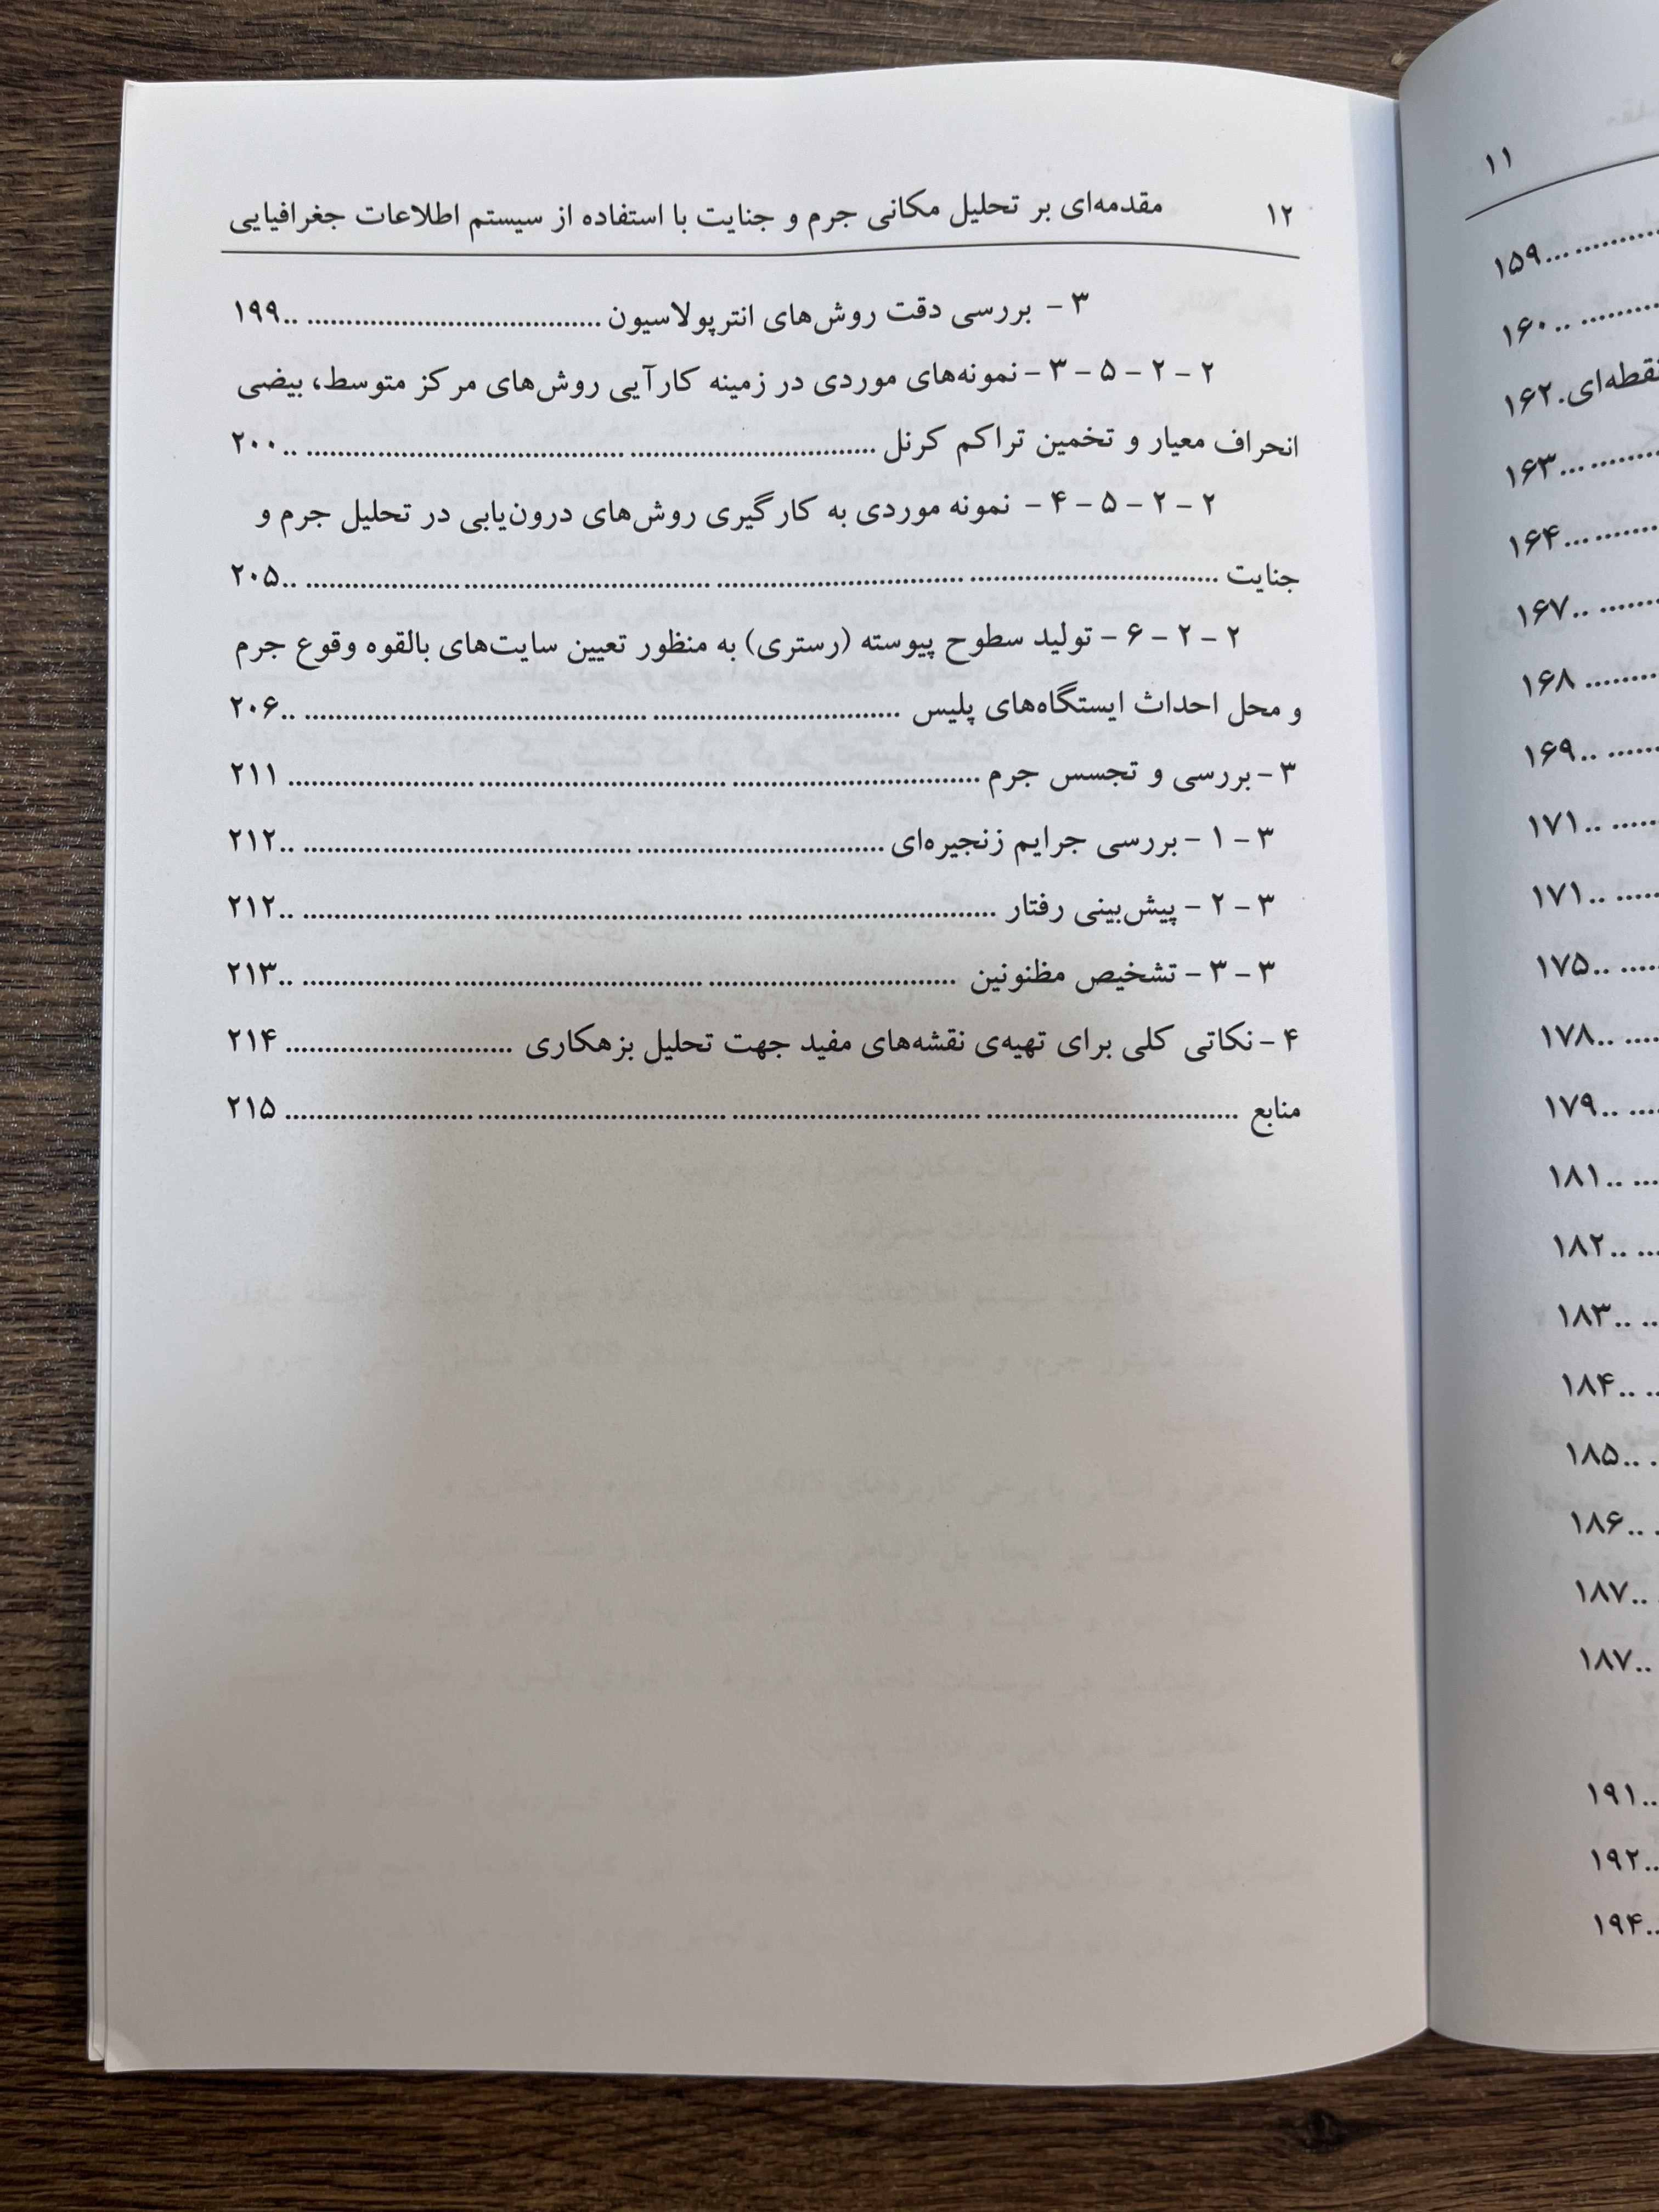 ۱۲ مقدمه‌ای بر تحلیل مکانی جرم و جنایت با استفاده از سیستم اطلاعات جغرافیایی
۳ - بررسی دقت روش‌های انترپولاسیون ..................................... ۱۹۹
۲ - ۲ - ۵ - ۳ - نمونه‌های موردی در زمینه کارآیی روش‌های مرکز متوسط، بیضی
انحراف معیار و تخمین تراکم کرنل ..................................... ۲۰۰
۲ - ۲ - ۵ - ۴ - نمونه موردی به کارگیری روش‌های درون‌یابی در تحلیل جرم و
جنایت ..................................... ۲۰۵
۲ - ۲ - ۶ - تولید سطوح پیوسته (رستری) به منظور تعیین سایت‌های بالقوه وقوع جرم
و محل احداث ایستگاه‌های پلیس ..................................... ۲۰۶
۳ - بررسی و تجسس جرم ..................................... ۲۱۱
۳ - ۱ - بررسی جرایم زنجیره‌ای ..................................... ۲۱۲
۳ - ۲ - پیش‌بینی رفتار ..................................... ۲۱۲
۳ - ۳ - تشخیص مظنونین ..................................... ۲۱۳
۴ - نکاتی کلی برای تهیه‌ی نقشه‌های مفید جهت تحلیل بزهکاری ............................. ۲۱۴
منابع ..................................... ۲۱۵
۱۱
...۱۵۹
..۱۶۰
نقطه‌ای.۱۶۲
...۱۶۳
...۱۶۴
..۱۶۷
... ۱۶۸
..۱۶۹
..۱۷۱
..۱۷۱
..۱۷۵
..۱۷۸
..۱۷۹
..۱۸۱
..۱۸۲
..۱۸۳
..۱۸۴
..۱۸۵
..۱۸۶
..۱۸۷
..۱۸۷
..۱۹۱
..۱۹۲
..۱۹۴